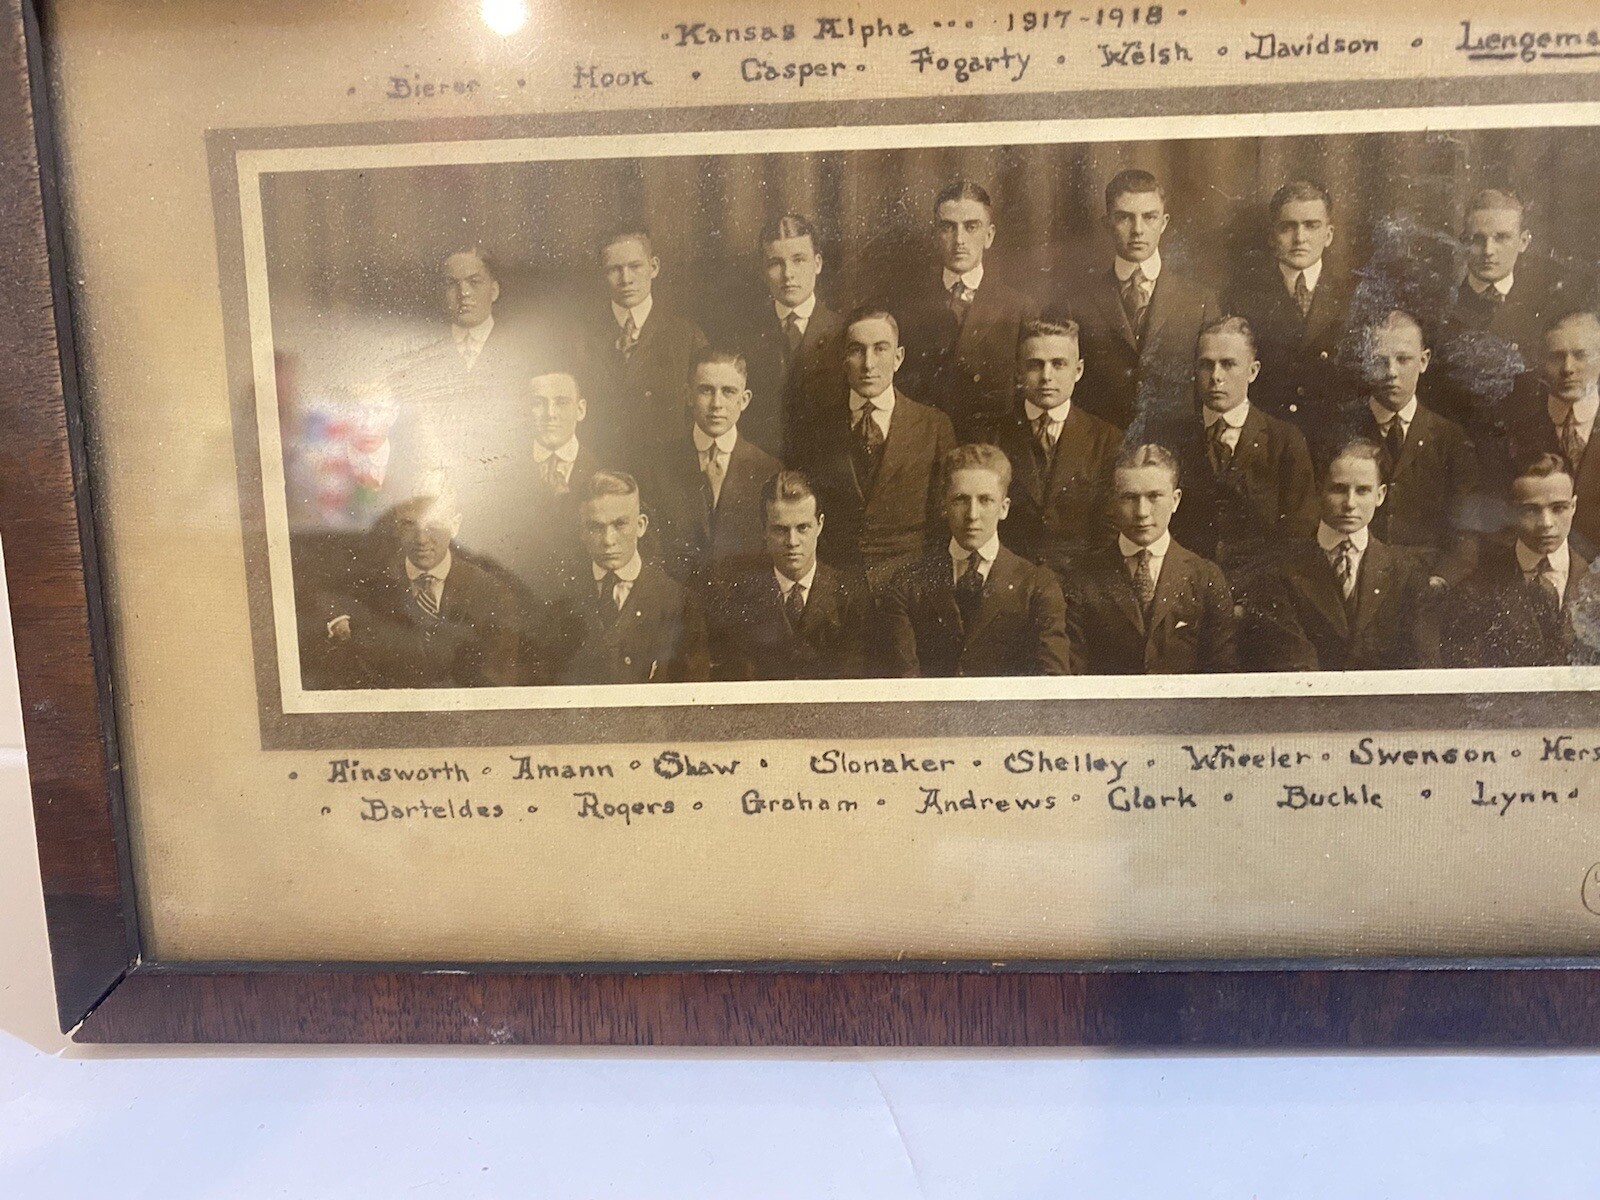 ·Kansas Alpha ··· ·1917-1918·
· Bierer · Hook · Casper · Fogarty · Welsh · Davidson · Lengema
· Ainsworth · Amann · Shaw · Slonaker · Shelley · Wheeler · Swenson · Hers
· Barteldes · Rogers · Graham · Andrews · Clark · Buckle · Lynn ·